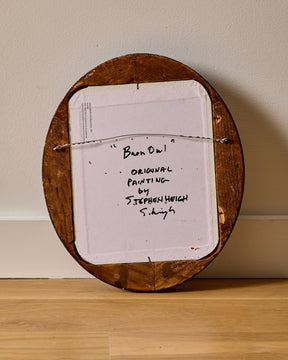 "Barn Owl"
ORIGINAL
PAINTING
by
STEPHEN HEIGH
S. Heigh